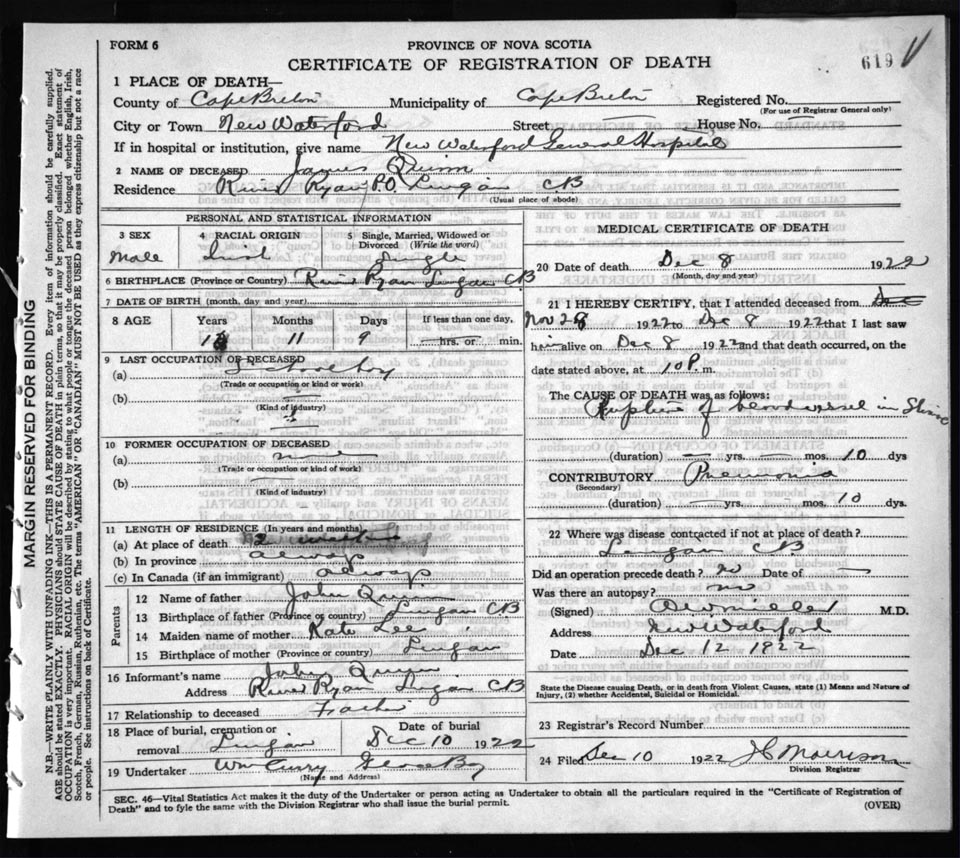 FORM 6
PROVINCE OF NOVA SCOTIA
CERTIFICATE OF REGISTRATION OF DEATH
619
1 PLACE OF DEATH—
County of Cape Breton Municipality of Cape Breton Registered No.
(For use of Registrar General only)
City or Town New Waterford Street — House No. —
If in hospital or institution, give name New Waterford General Hospital
2 NAME OF DECEASED James Quinn
Residence River Ryan P.O. Lingan CB
(Usual place of abode)
PERSONAL AND STATISTICAL INFORMATION
3 SEX 4 RACIAL ORIGIN 5 Single, Married, Widowed or Divorced (Write the word)
Male Irish Single
6 BIRTHPLACE (Province or Country) River Ryan Lingan CB
7 DATE OF BIRTH (month, day and year)
8 AGE Years Months Days If less than one day,
11 9 hrs. or min.
9 LAST OCCUPATION OF DECEASED
(a)
(Trade or occupation or kind or work)
(b) —
(Kind of industry)
10 FORMER OCCUPATION OF DECEASED
(a) none
(Trade or occupation or kind of work)
(b) —
(Kind of industry)
11 LENGTH OF RESIDENCE (In years and months)
(a) At place of death
(b) In province always
(c) In Canada (if an immigrant) always
Parents
12 Name of father John Quinn
13 Birthplace of father (Province or country) Lingan CB
14 Maiden name of mother Kate Lee
15 Birthplace of mother (Province or country) Lingan
16 Informant's name John Quinn
Address River Ryan Lingan CB
17 Relationship to deceased Father
18 Place of burial, cremation or removal Lingan Date of burial Dec 10 1922
19 Undertaker Wm Curry Glace Bay
(Name and Address)
MEDICAL CERTIFICATE OF DEATH
20 Date of death Dec 8 1922
(Month, day and year)
21 I HEREBY CERTIFY, that I attended deceased from Dec
Nov 28 1922 to Dec 8 1922 that I last saw
him alive on Dec 8 1922 and that death occurred, on the
date stated above, at 10 P. m.
The CAUSE OF DEATH was as follows:
Rupture of blood vessel in
(duration) — yrs. — mos. 10 dys
CONTRIBUTORY Pneumonia
(Secondary)
(duration) — yrs. — mos. 10 dys.
22 Where was disease contracted if not at place of death?
Lingan CB
Did an operation precede death? no Date of —
Was there an autopsy? no
(Signed) M.D.
Address New Waterford
Date Dec 12 1922
State the Disease causing Death, or in death from Violent Causes, state (1) Means and Nature of
Injury, (2) whether Accidental, Suicidal or Homicidal.
23 Registrar's Record Number
24 Filed Dec 10 1922 Morrison
Division Registrar
SEC. 46—Vital Statistics Act makes it the duty of the Undertaker or person acting as Undertaker to obtain all the particulars required in the "Certificate of Registration of
Death" and to fyle the same with the Division Registrar who shall issue the burial permit. (OVER)
MARGIN RESERVED FOR BINDING
N.B.—WRITE PLAINLY WITH UNFADING INK—THIS IS A PERMANENT RECORD. Every item of information should be carefully supplied.
AGE should be stated EXACTLY. PHYSICIANS should STATE CAUSE OF DEATH in plain terms, so that it may be properly classified. Exact statement of
OCCUPATION is very important. RACIAL ORIGIN will be described by stating to what people or tongue the deceased person belonged whether English, Irish,
Scotch, French, German, Russian, Ruthenian, etc. The terms "AMERICAN" OR "CANADIAN" MUST NOT BE USED as they express citizenship but not a race
or people. See instructions on back of Certificate.